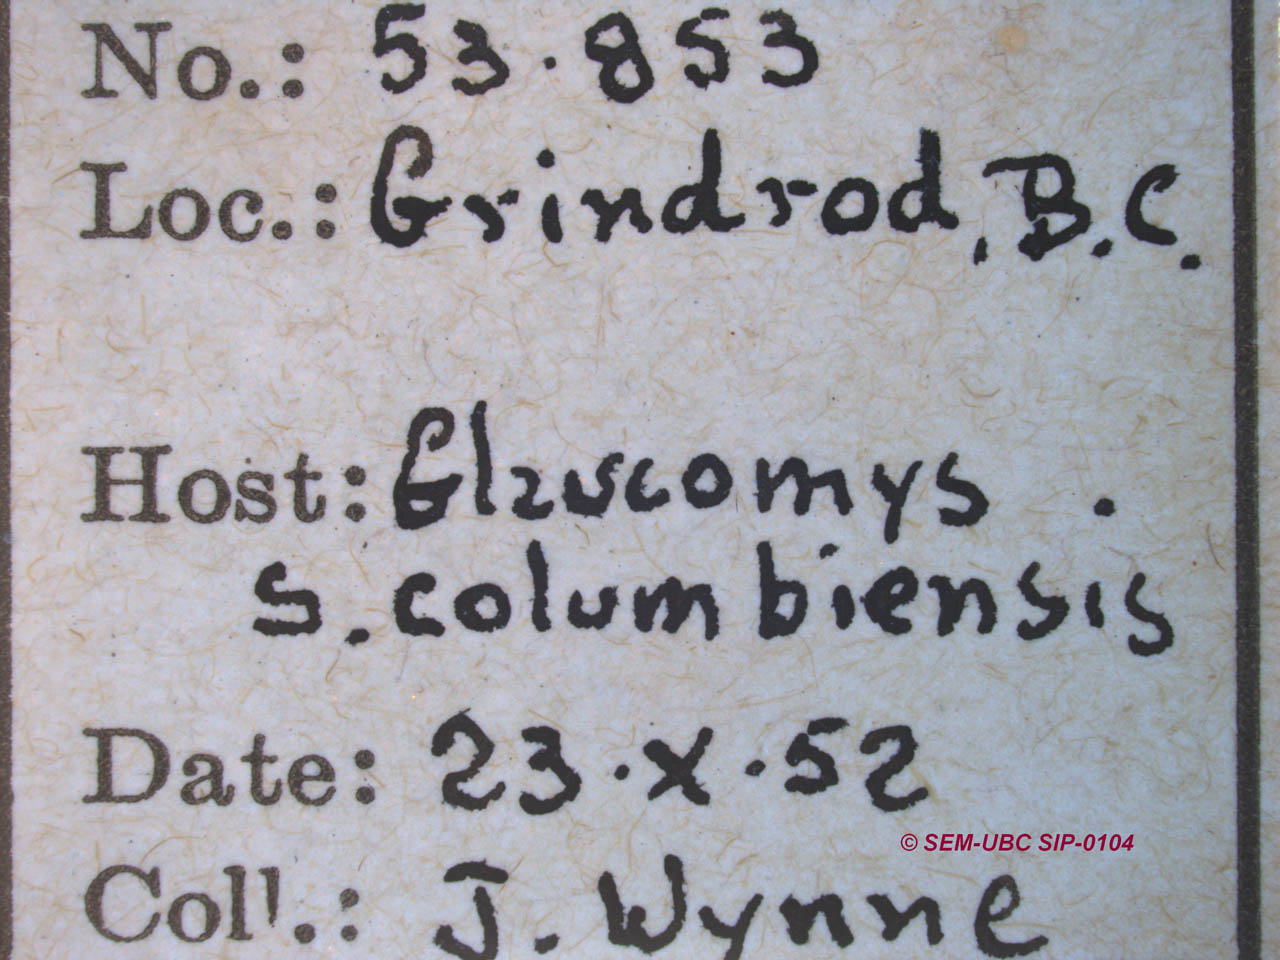 No.: 53.853
Loc.: Grindrod, B.C.
Host: Glaucomys .
s. columbiensis
Date: 23.X.52
© SEM-UBC SIP-0104
Coll.: J. Wynne